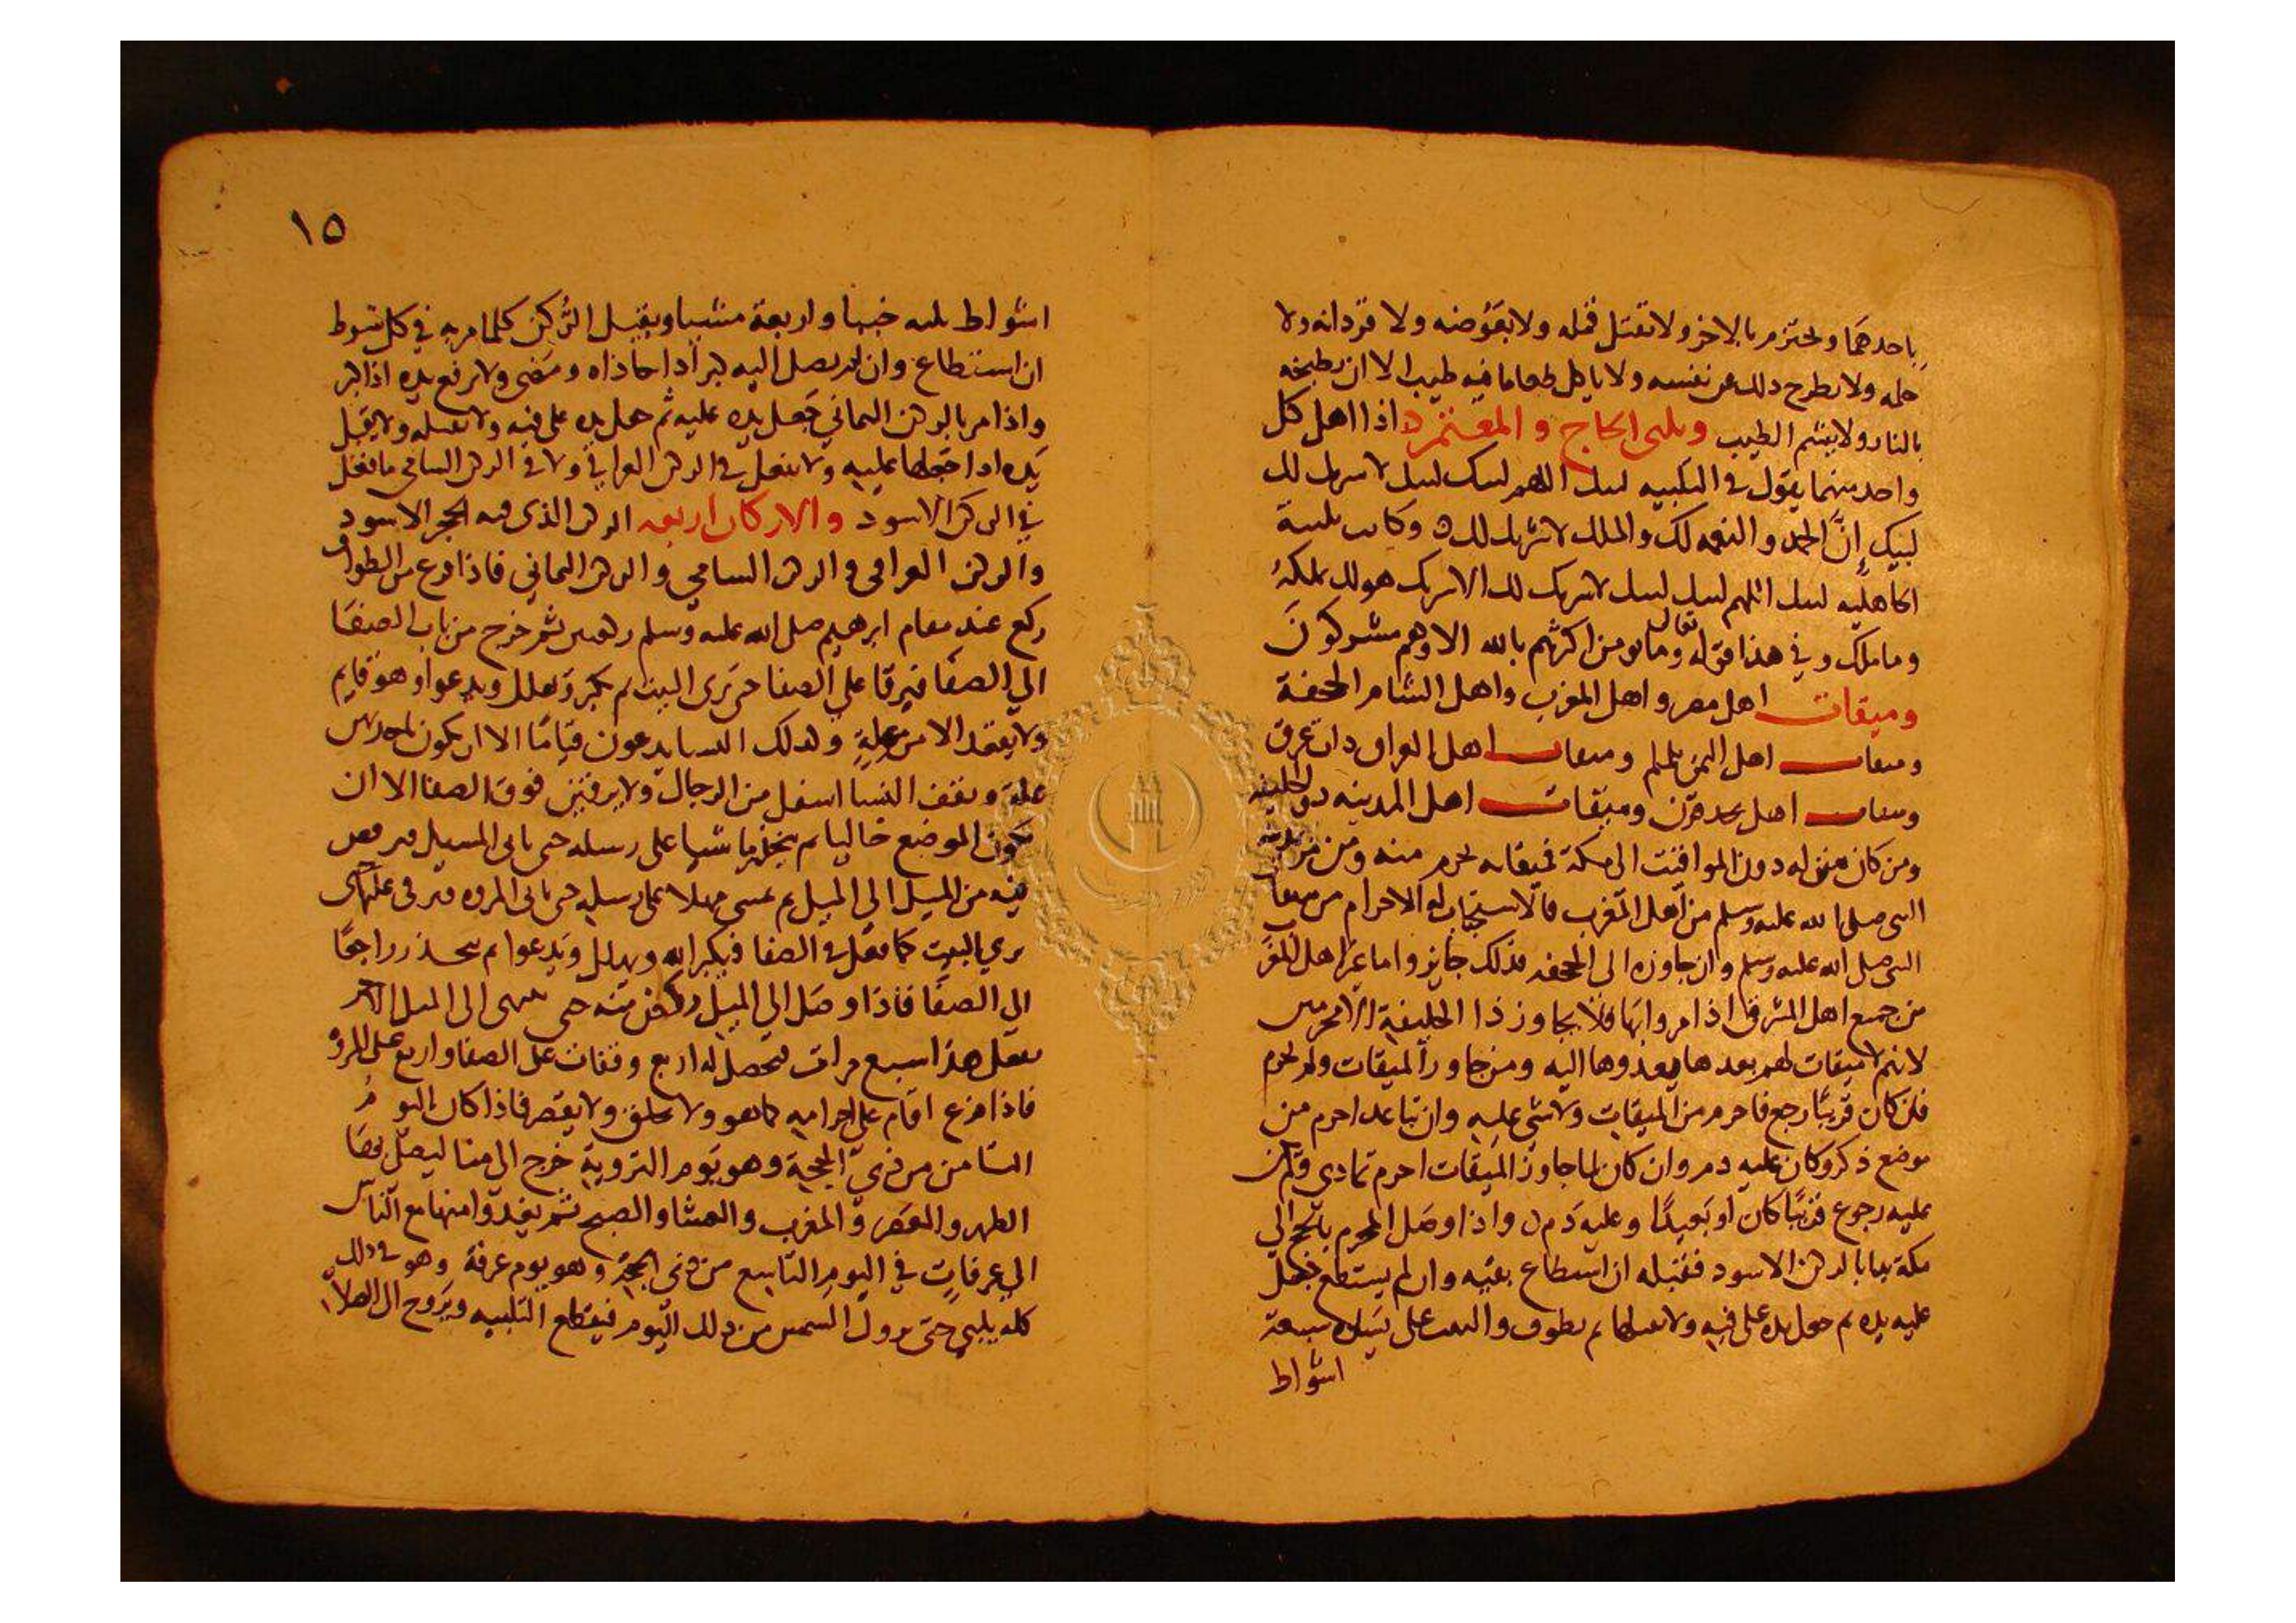 باحدهما ويحتزم بالاخر ولا تقتل قمله ولا بعوضه ولا قردانه ولا
حلمه ولا يطرح ذلك عن نفسه ولا ياكل طعاما فيه طيب الا ان يطبخه
بالنار ولا يشم الطيب ويلبى الحاج والمعتمر اذا اهل كل
واحد منهما يقول في التلبيه لبيك اللهم لبيك لبيك لا شريك لك
لبيك إنّ الحمد والنعمه لك والملك لا شريك لك وكانت تلبية
الجاهليه لبيك اللهم لبيك لبيك لا شريك لك الا شريك هو لك تملكهُ
وما ملك وفي هذا قوله تعالى وما يومن اكثرهم بالله الا وهم مشركونَ
وميقات اهل مصر واهل المغرب واهل الشام الجحفة
وميقات اهل اليمن يلملم وميقات اهل العراق ذات عرق
وميقات اهل نجد قرن وميقات اهل المدينه ذو الحليفه
ومن كان منزله دون المواقيت الى مكة فميقاته يحرم منه ومن مر بمدينة
النبي صلى الله عليه وسلم من اهل المغرب فالاستحباب له الاحرام من ميقات
النبي صلى الله عليه وسلم وان جاوزه الى الجحفه فذلك جايز واما غير اهل المغرب
من جميع اهل المشرق اذا مروا بها فلا يجاوز ذا الحليفة الا محرمين
لانهم لا ميقات لهم بعدها يعدوها اليه ومن جاوز الميقات ولم يحرم
فان كان قريبًا رجع فاحرم من الميقات ولا شي عليه وان تباعد احرم من
موضع ذكر وكان عليه دم وان كان لما جاوز الميقات احرم تمادى ولم يكن
عليه رجوع قريبًا كان او بعيدًا وعليه دم واذا وصل المحرم بالحج الي
مكة بدا بالركن الاسود فقبله ان استطاع بفيه وان لم يستطع جعل
عليه يده ثم جعل يده على فيه ولا يقبلها ثم يطوف والبيت على يساره سبعة
اشواط
١٥
اشواط ثلثه خببا واربعة مشيا ويقبل الركن كلما مر به في كل شوط
ان استطاع وان لم يصل اليه كبر اذا حاذاه ومضى ولا يرفع يده اذا كبر
واذا مر بالركن اليماني جعل يده عليه ثم جعل يده على فيه ولا يقبله ولا يقبل
يده اذا جعلها عليه ولا يفعل في الركن العراقي ولا في الركن الشامي ما يفعل
في الركن الاسود والاركان اربعه الركن الذى فيه الحجر الاسود
والركن العراقي والركن الشامي والركن اليماني فاذا فرغ من الطواف
ركع عند مقام ابرهيم صلى الله عليه وسلم ركعتين ثم خرج من باب الصفا
الي الصفا فيرقا علي الصفا حتى يرى البيت ثم يكبر ويهلل ويدعوا وهو قايم
ولا يقعد الا من علةٍ وكذلك النسا يدعون قيامًا الا ان يكون باحديهن
علة ويقف النسا اسفل من الرجال ولا يرقين فوق الصفا الا ان
يكون الموضع خاليا ثم ينحدر ماشيا على رسله حتى ياتى المسيل
فيه من الميل الي الميل ثم يمشي مهلا على رسله حتى ياتى المروه فيرقى عليها حتى
يري البيت كما فعل في الصفا فيكبر الله ويهلل ويدعوا ثم ينحدر راجعًا
الي الصفا فاذا وصل الي الميل ركض منه حتى ينتهى الى الميل الاخر
يفعل هذا سبع مرات فتحصل له اربع وقفات على الصفا واربع على المروه
فاذا فرغ اقام على احرامه كما هو ولا يحلق ولا يقصر فاذا كان اليوم
الثامن من ذي الحجة وهو يوم التروية خرج الي منا ليصلى بها
الظهر والعصر والمغرب والعشا والصبح ثم يغدوا منها مع الناس
الي عرفات في اليوم التاسع من ذى الحجة وهو يوم عرفة وهو في ذلك
كله يلبي حتى تزول الشمس من ذلك اليوم فيقطع التلبيه ويروح الى الصلاة